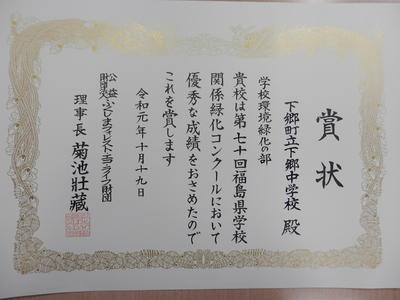 賞状
下郷町立下郷中学校 殿
学校環境緑化の部
貴校は第七十回福島県学校
関係緑化コンクールにおいて
優秀な成績をおさめたので
これを賞します
令和元年十月十九日
公益
財団法人 ふくしまフォレスト・エコ・ライフ財団
理事長 菊池壯藏